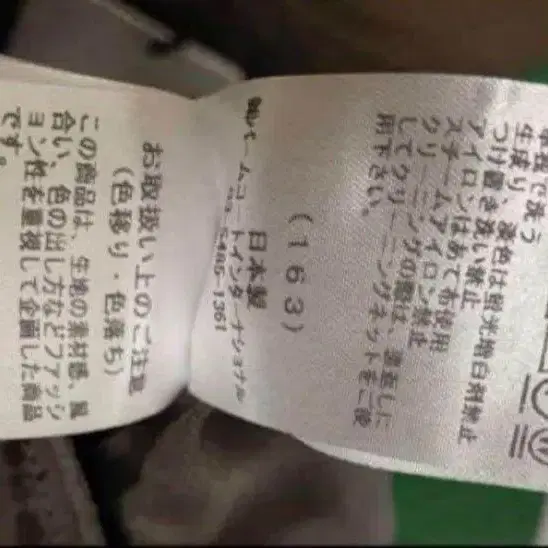 で洗う
生成り、淡色は蛍光増白剤禁止
つけ置き洗い禁止
アイロンはあて布使用
スチームアイロン禁止
クリーニングの際は、裏返しに
してクリーニングネットをご使
用下さい。
(163)
日本製
インターナショナル
5485-1361
お取扱い上のご注意
(色移り・色落ち)
この商品は、生地の素材感、風
合い、色の出し方などファッシ
ョン性を重視して企画した商品
です。